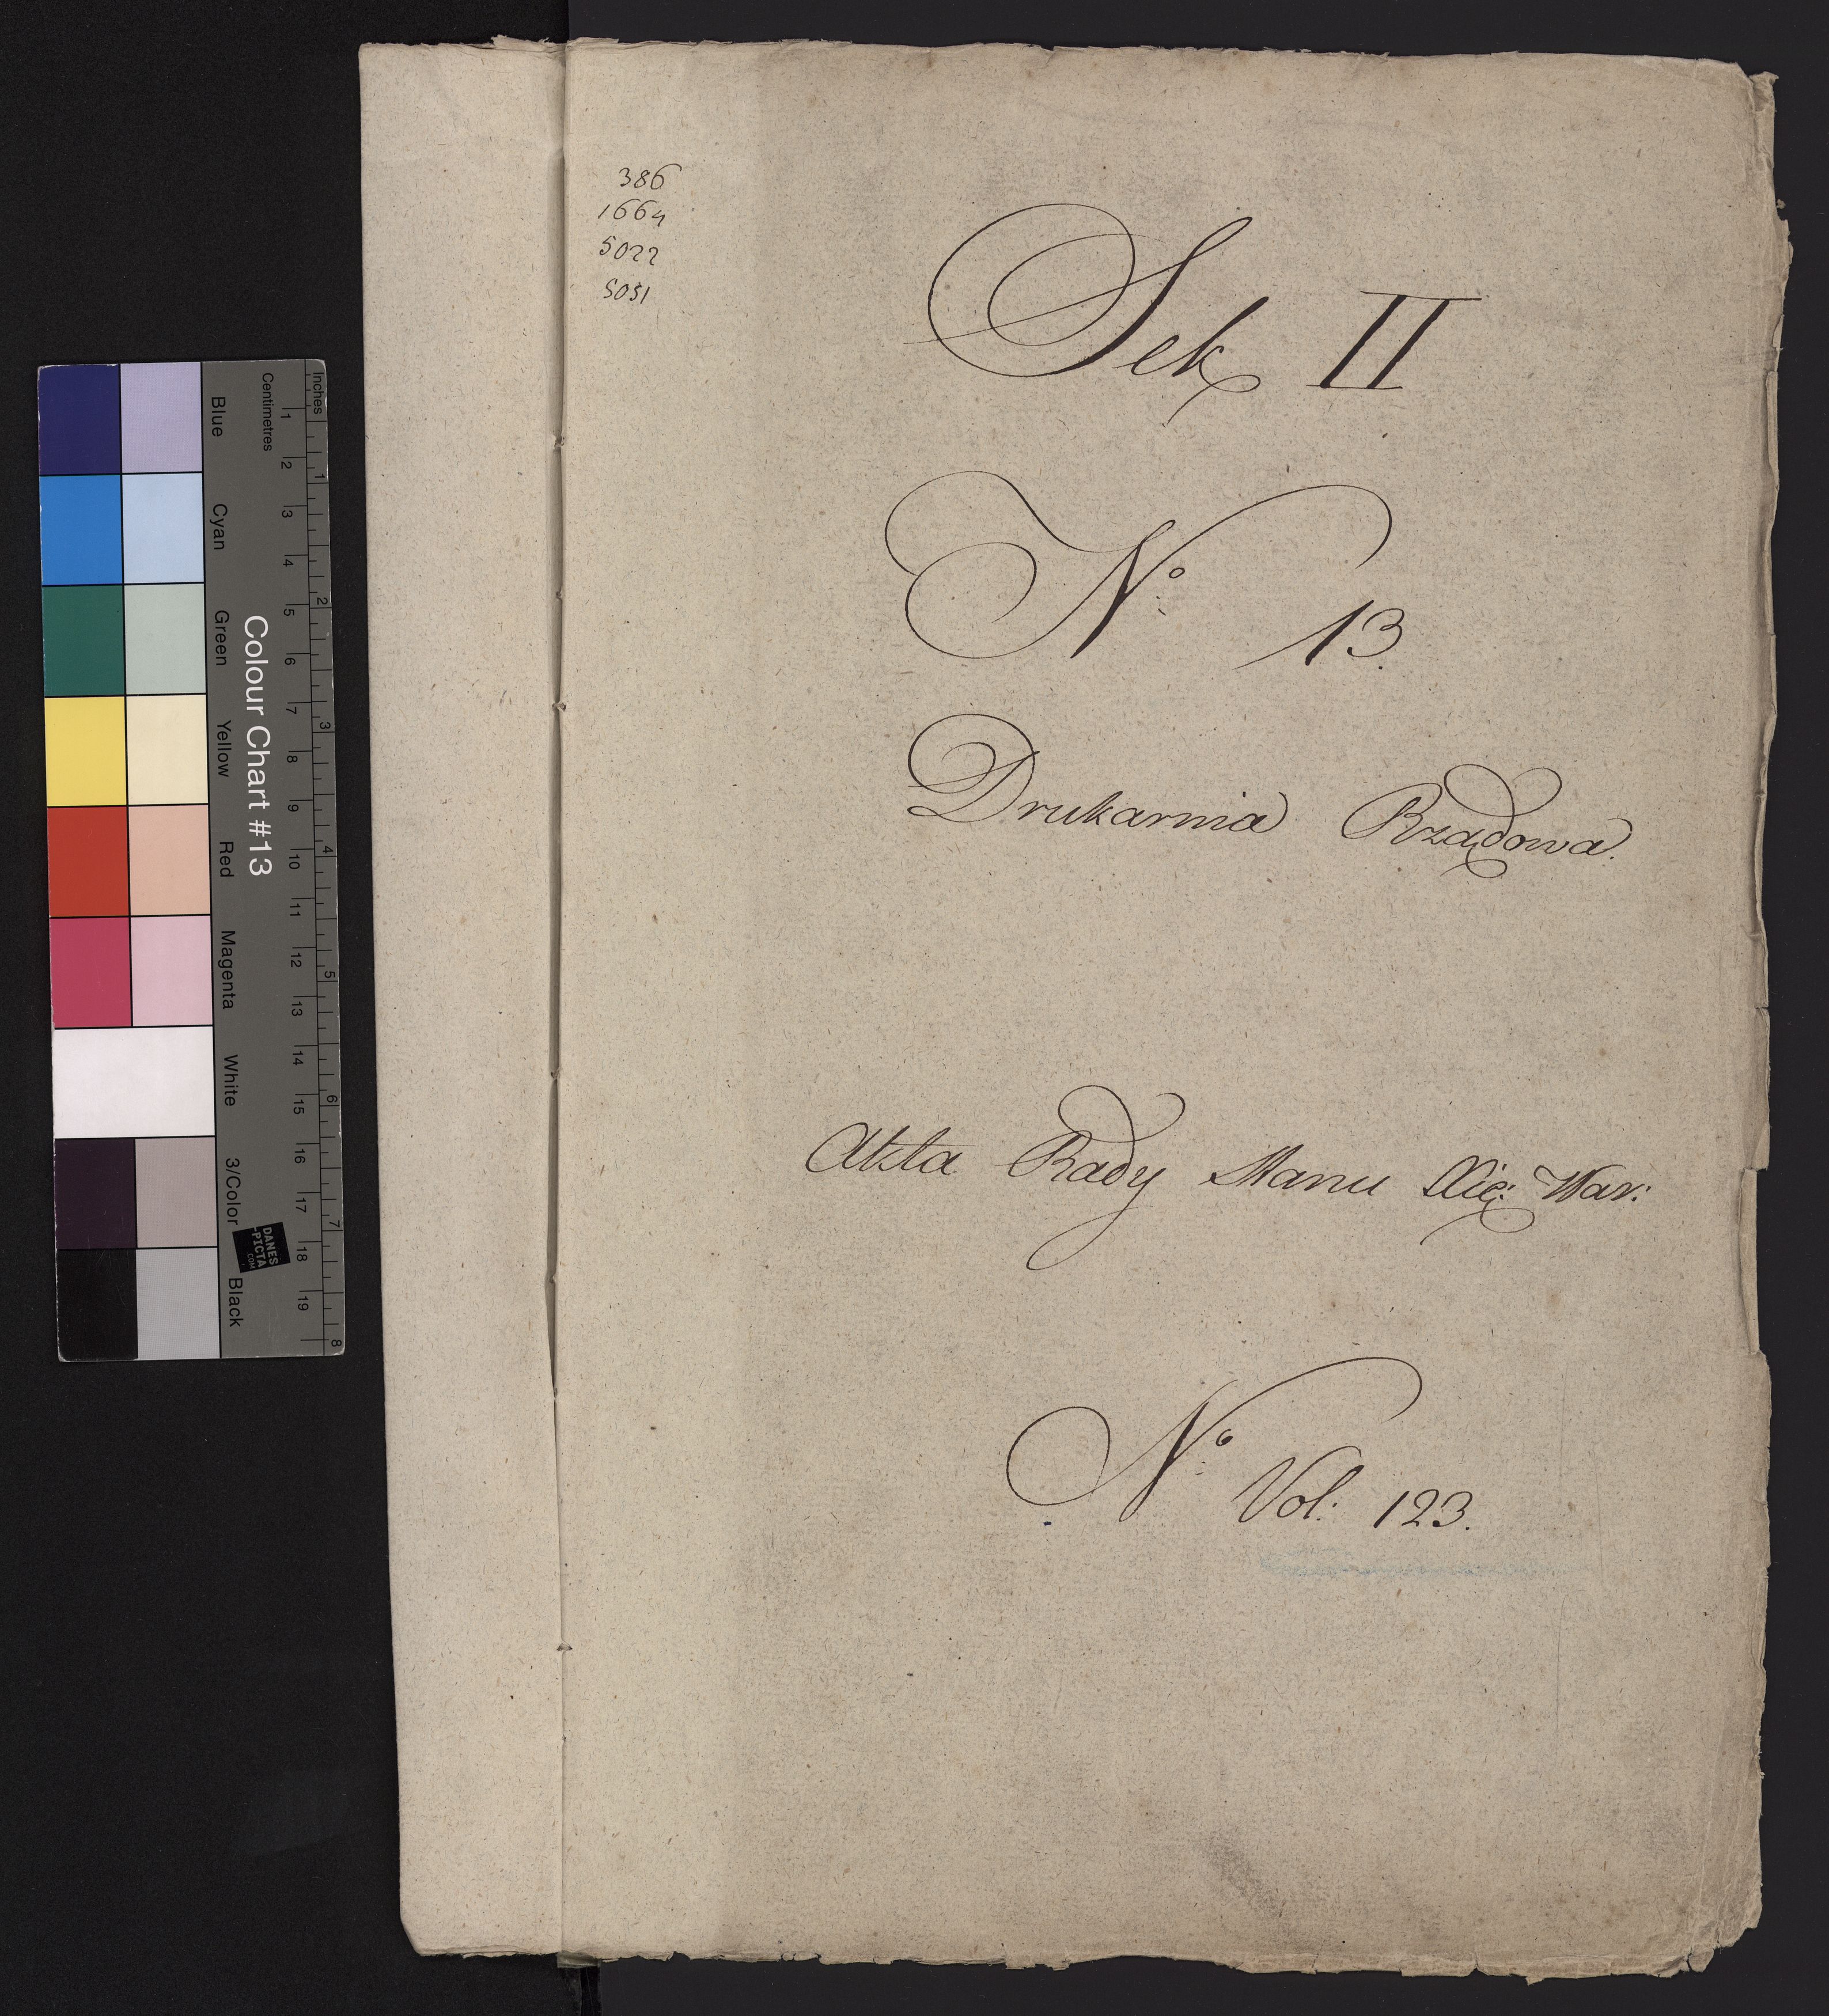 386
1664
5022
5051
Sek II
No 13.
Drukarnia Rządowa.
Akta Rady Stanu Xię: War:
No Vol: 123.
Inches
Centimetres
1 2 3 4 5 6 7 8
1 2 3 4 5 6 7 8 9 10 11 12 13 14 15 16 17 18 19
Colour Chart #13
Blue Cyan Green Yellow Red Magenta White 3/Color Black
DANES
-PICTA
.COM